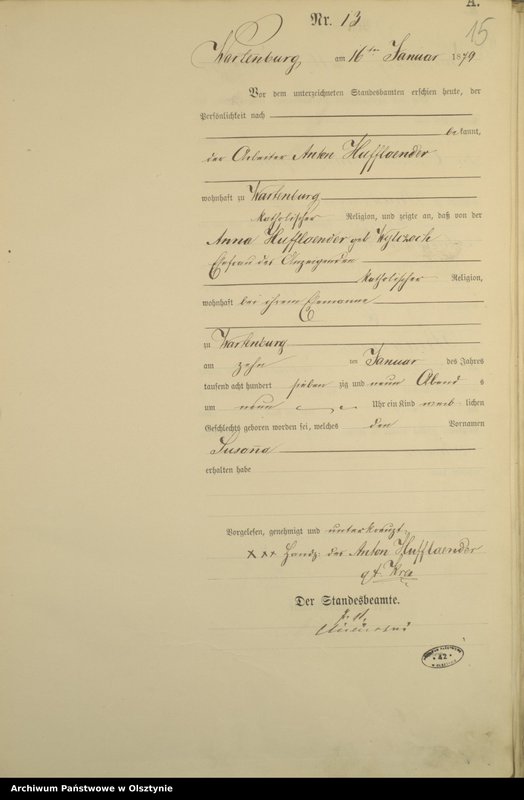 A.
15
Nr. 13
Wartenburg, am 16ten Januar 1879
Vor dem unterzeichneten Standesbeamten erschien heute, der
Persönlichkeit nach
bekannt,
der Arbeiter Anton Hufflaender
wohnhaft zu Wartenburg
katholischer Religion, und zeigte an, daß von der
Anna Hufflaender geb
Ehefrau des Anzeigenden
katholischer Religion,
wohnhaft bei ihrem Ehemanne
zu Wartenburg
am zehn ten Januar des Jahres
tausend acht hundert sieben zig und neun Abend s
um neun Uhr ein Kind weib lichen
Geschlechts geboren worden sei, welches den Vornamen
Susanna
erhalten habe
Vorgelesen, genehmigt und unterkreuzt
xxx Handz. des Anton Hufflaender
Der Standesbeamte.
42
Archiwum Państwowe w Olsztynie